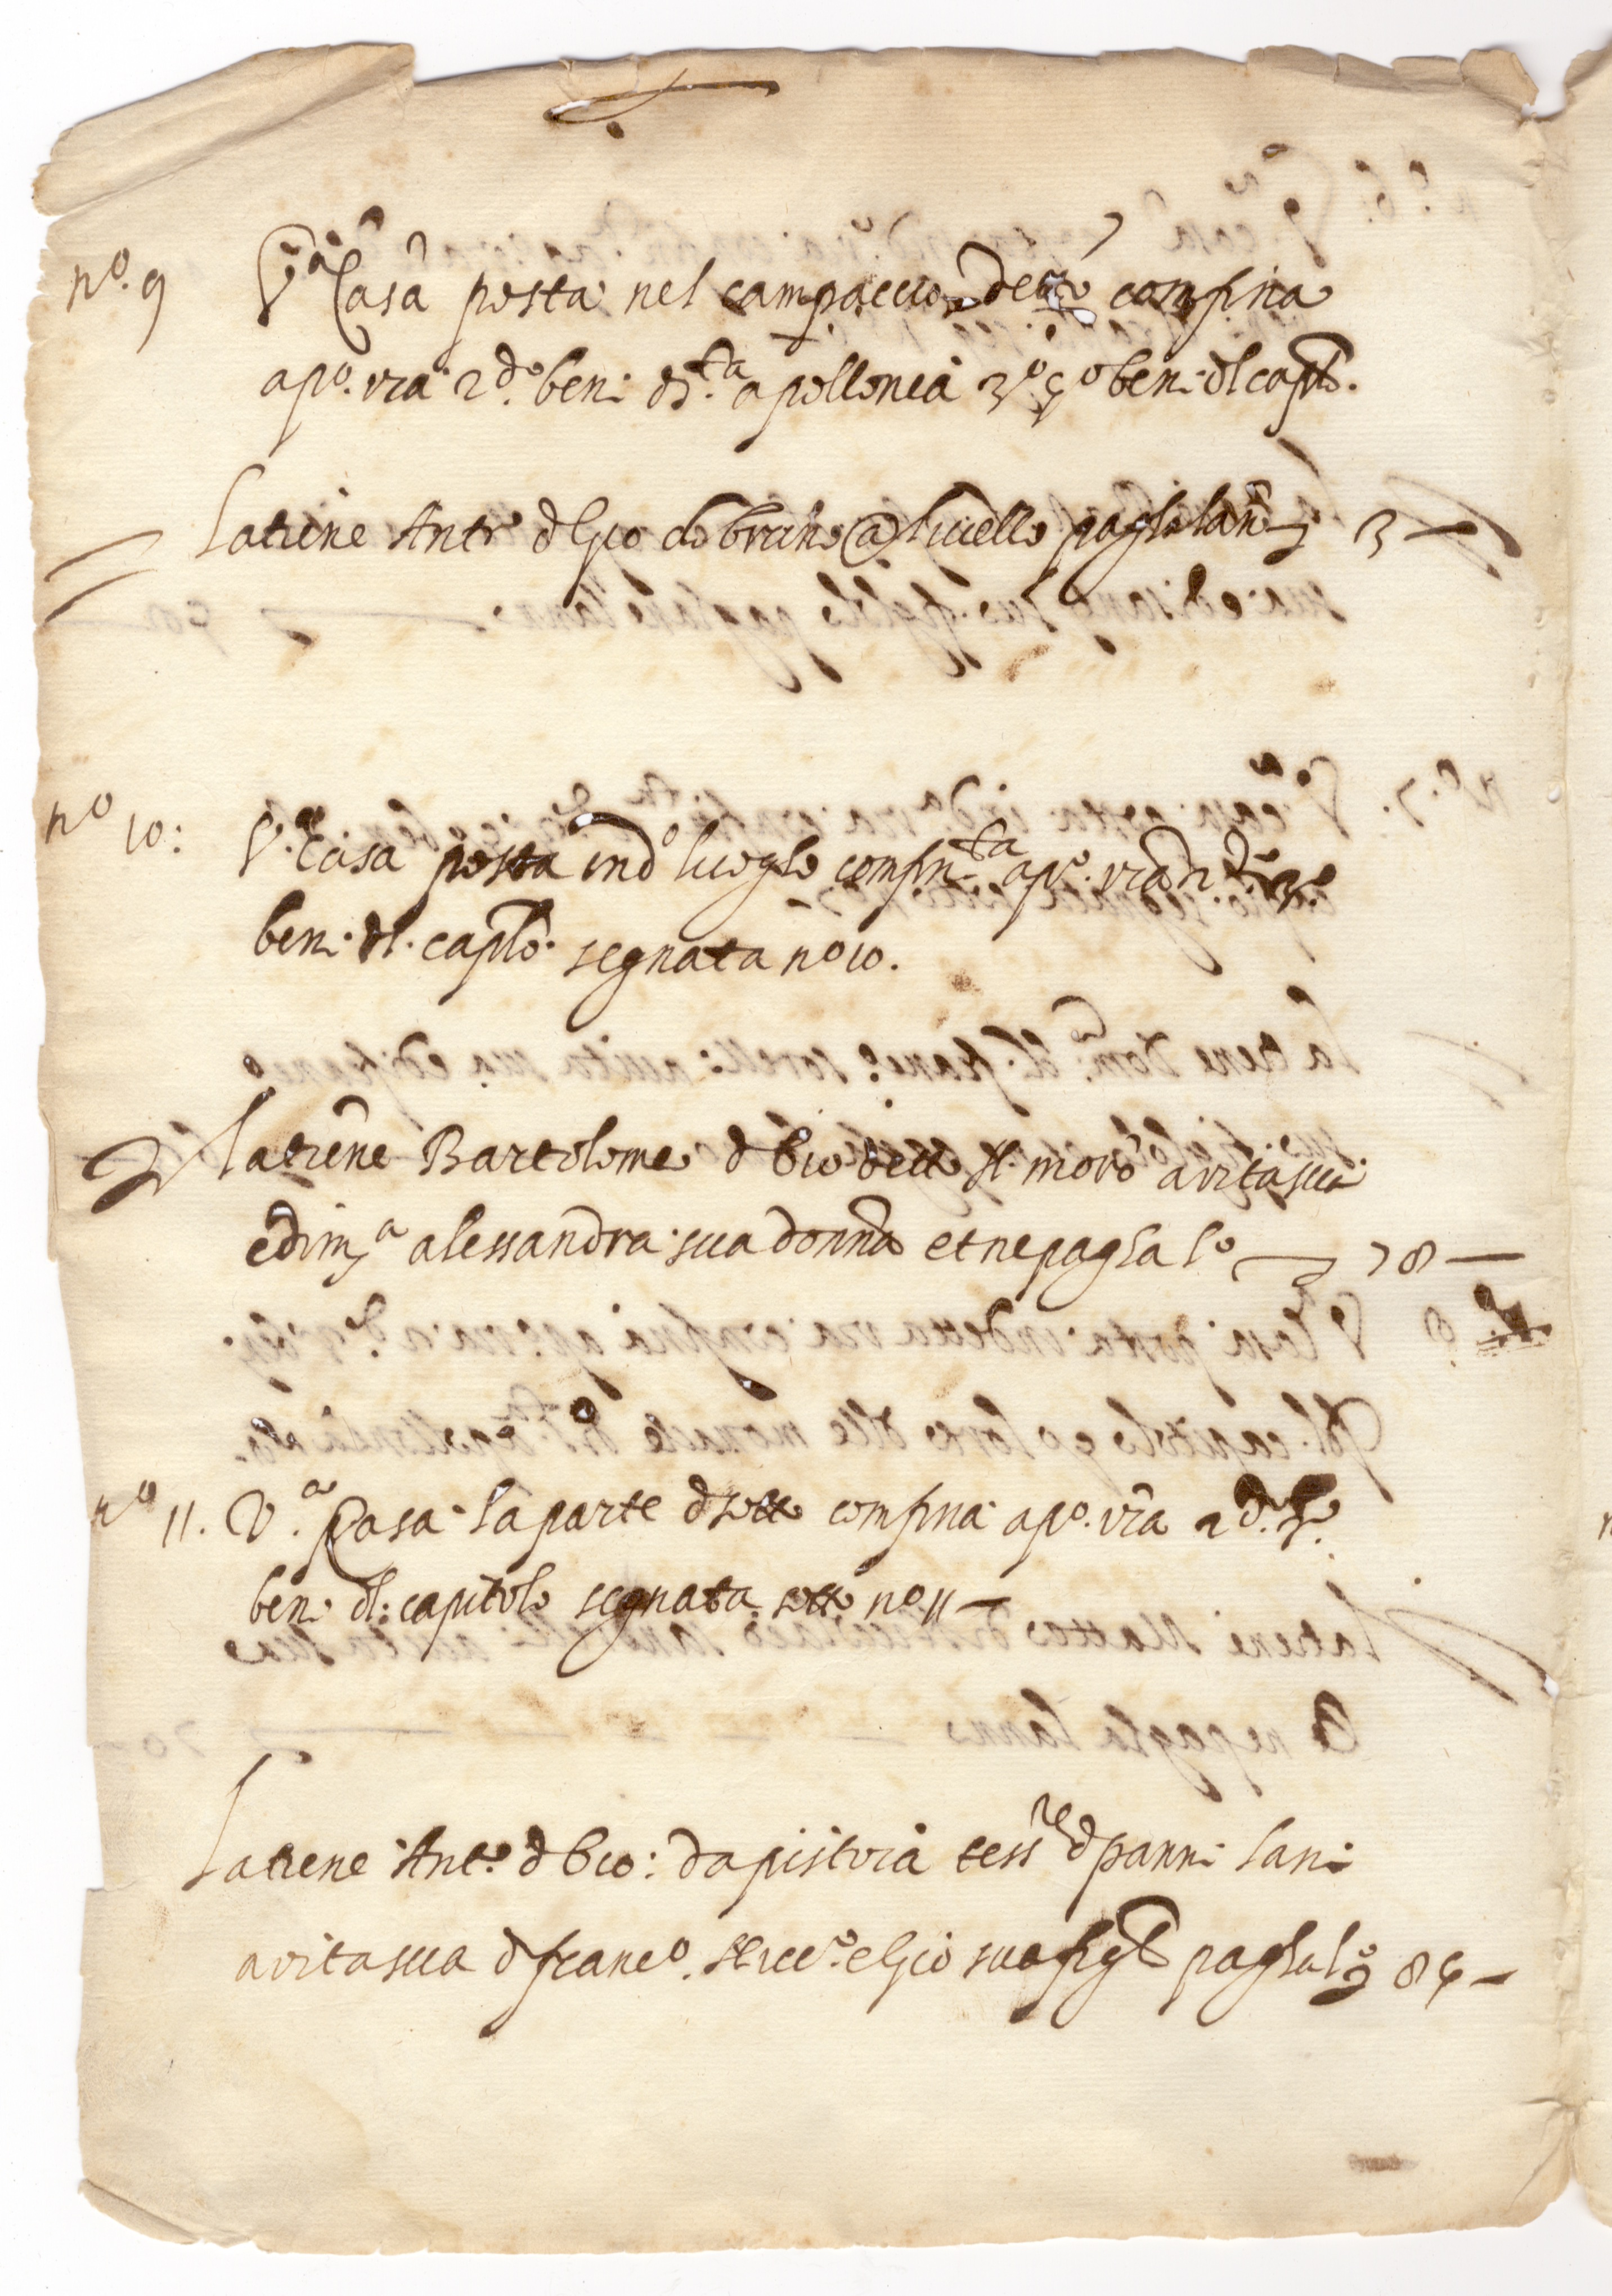 nº. 9 Vª Casa posta nel campaccio detto confina
a pº. via 2dº. beni di Sta apollonia 3º 4º beni dl caplo.
La tiene Antº d Gio di brano a livello pagha lan 3 —
nº 10: V.ª Casa posta in dº luogho confinta a pº. via 2dº 3º
beni dl. caplo. segnata nº 10.
La tiene Bartolomeo d Gio dett dl moro a vita sua
e di mª alessandra sua donna et ne pagha lº — 78 —
nº 11. V.ª Casa la parte d sotto confina a pº. via 2dº. 3º.
beni dl: capitolo segnata sotto nº 11 —
La tiene Antº. d Gio: da pistoia tessre d panni lani
a vita sua d francº. e Gio suo figlo pagha lº 84 —